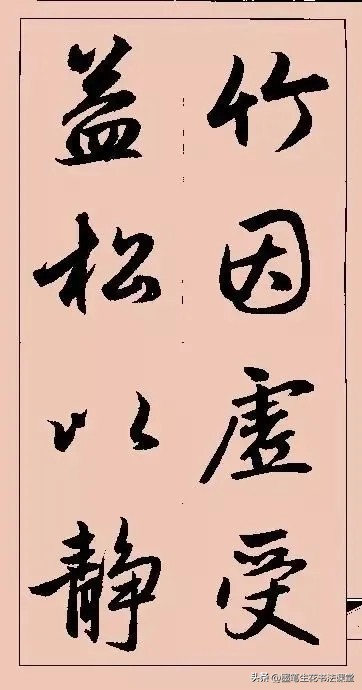 竹因虚受
益松以静
头条 @墨笔生花书法课堂